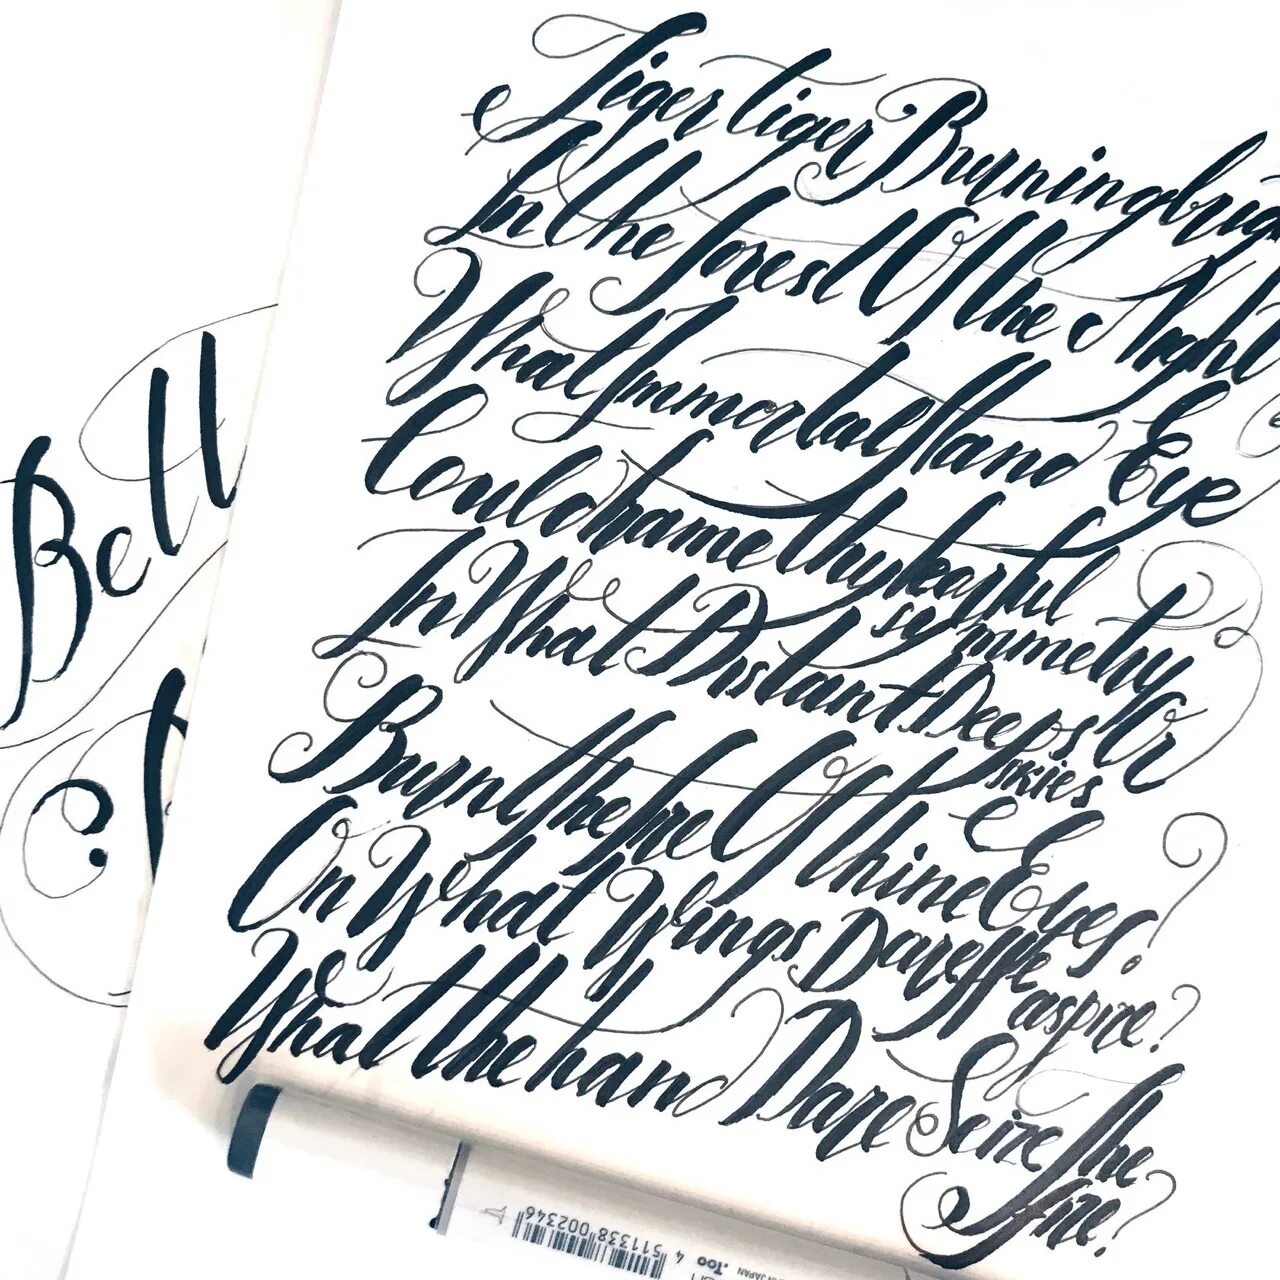 Tiger tiger Burning brigh
In the forest Of the Night
What Immortal Hand Eye
Could frame thy fearful
symmetry
In What Distant Deeps Or
skies
Burnt the fire Of thine Eyes?
On What Wings Dare He
aspire?
What the hand Dare Seize the
fire?
Bell
4 511338 002346
.Too
JAPAN